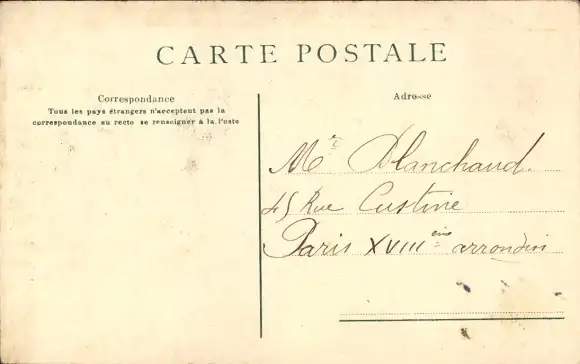 CARTE POSTALE
Correspondance
Tous les pays étrangers n'acceptent pas la
correspondance au recto se renseigner à la Poste
Adresse
Mr Blanchaud.
45 Rue Custine
Paris XVIII ème arrondin